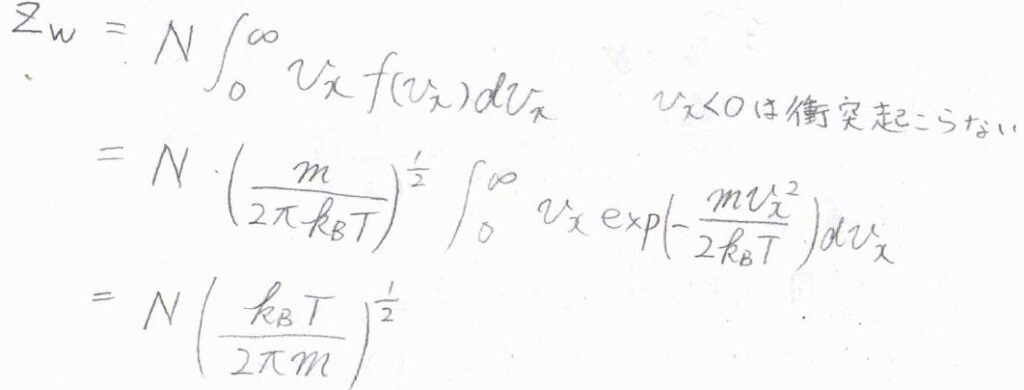 Z_w = N ∫_0^∞ v_x f(v_x) dv_x　v_x<0は衝突起こらない
= N・(m / 2πk_BT)^{1/2} ∫_0^∞ v_x exp(-mv_x^2 / 2k_BT) dv_x
= N (k_BT / 2πm)^{1/2}